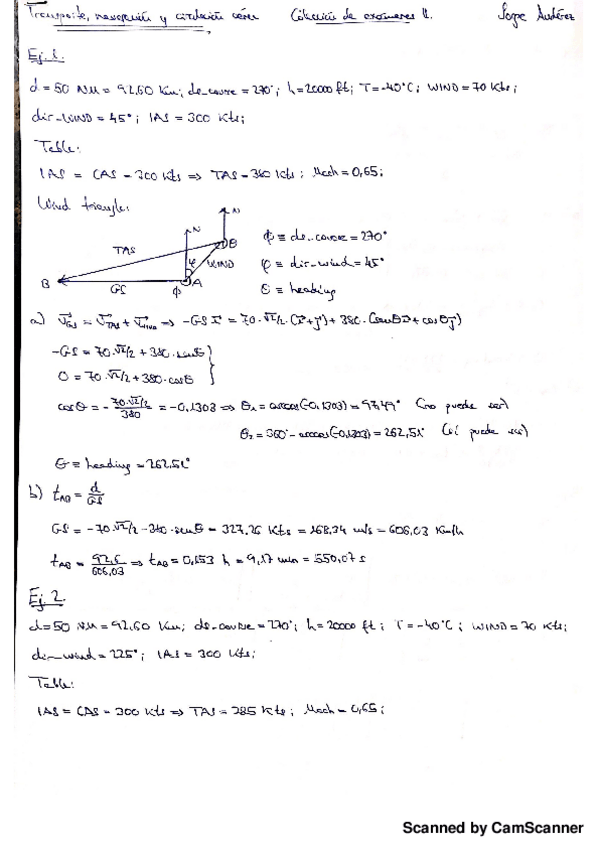 Transporte, navegación y circulación aérea Colección de exámenes II. Jope
Ej. 1.
d = 50 NM = 92,60 Km; de_course = 270°; h = 20000 ft; T = -40°C; WIND = 70 Kts;
dir_WIND = 45°; IAS = 300 Kts;
Table:
IAS = CAS = 300 Kts ⇒ TAS = 380 Kts; Mach = 0,65;
Wind triangle:
N
N
TAS
B
φ
WIND
B
GS
Φ
A
Φ ≡ de_course = 270°
φ ≡ dir_wind = 45°
Θ ≡ heading
a) V_GS = V_TAS + V_WIND ⇒ -GS i = 70·√2/2·(i+j) + 380·(senθi + cosθj)
-GS = 70·√2/2 + 380·senθ
0 = 70·√2/2 + 380·cosθ
cosθ = -70·√2/2 / 380 = -0,1303 ⇒ θ₁ = arccos(-0,1303) = 97,49° (no puede ser)
θ₂ = 360° - arccos(-0,1303) = 262,51° (sí puede ser)
Θ ≡ heading = 262,51°
b) t_AB = d/GS
GS = -70·√2/2 - 380·senθ = 327,26 Kts = 168,34 m/s = 606,03 Km/h
t_AB = 92,6/606,03 ⇒ t_AB = 0,153 h = 9,17 min = 550,07 s
Ej. 2.
d = 50 NM = 92,60 Km; de_course = 270°; h = 20000 ft; T = -40°C; WIND = 70 Kts;
dir_wind = 225°; IAS = 300 Kts;
Table:
IAS = CAS = 300 Kts ⇒ TAS = 385 Kts; Mach = 0,65;
Scanned by CamScanner